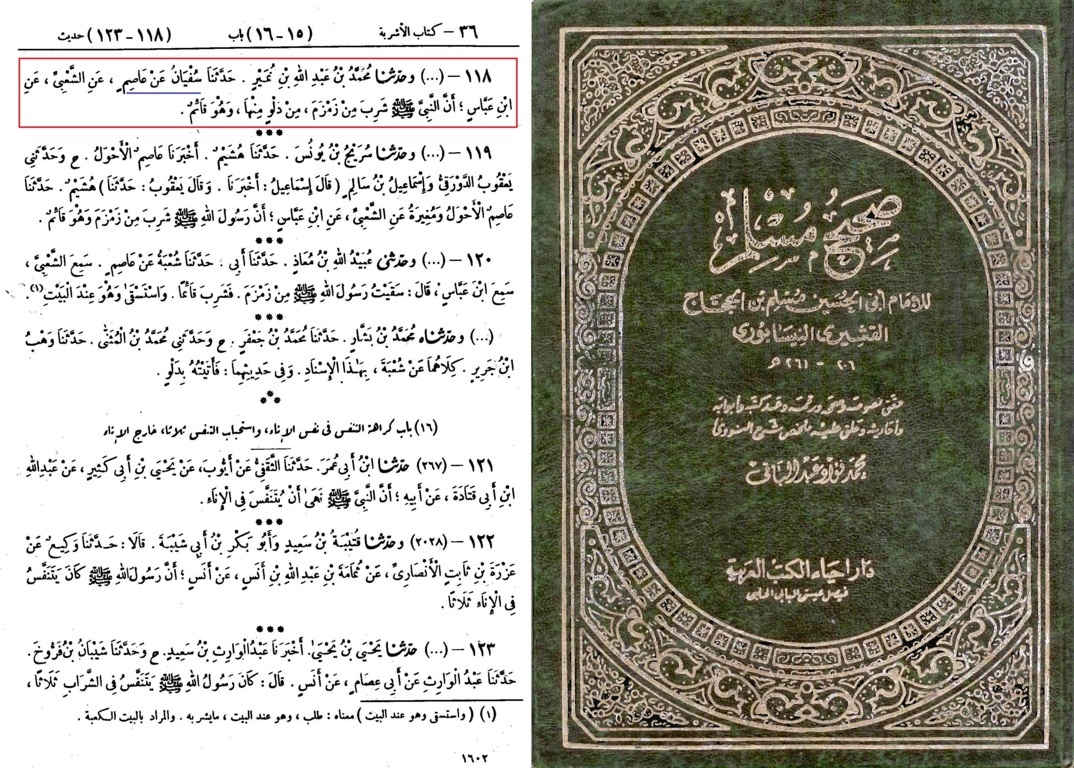 ٣٦ – كتاب الأشربة (١٥ - ١٦) باب (١١٨ - ١٢٣) حديث
١١٨ – (...) وحَدَّثَنَا مُحَمَّدُ بْنُ عَبْدِ اللهِ بْنِ نُمَيْرٍ . حَدَّثَنَا سُفْيَانُ عَنْ عَاصِمٍ ، عَنِ الشَّعْبِيِّ ، عَنِ
ابْنِ عَبَّاسٍ ؛ أَنَّ النَّبِيَّ ﷺ شَرِبَ مِنْ زَمْزَمَ ، مِنْ دَلْوٍ مِنْهَا ، وَهُوَ قَائِمٌ .
***
١١٩ – (...) وحَدَّثَنَا سُرَيْجُ بْنُ يُونُسَ . حَدَّثَنَا هُشَيْمٌ . أَخْبَرَنَا عَاصِمٌ الْأَحْوَلُ . ح وَحَدَّثَنِي
يَعْقُوبُ الدَّوْرَقِيُّ وَإِسْمَاعِيلُ بْنُ سَالِمٍ ( قَالَ إِسْمَاعِيلُ : أَخْبَرَنَا . وَقَالَ يَعْقُوبُ : حَدَّثَنَا ) هُشَيْمٌ . حَدَّثَنَا
عَاصِمٌ الْأَحْوَلُ وَمُغِيرَةُ عَنِ الشَّعْبِيِّ ، عَنِ ابْنِ عَبَّاسٍ ؛ أَنَّ رَسُولَ اللهِ ﷺ شَرِبَ مِنْ زَمْزَمَ وَهُوَ قَائِمٌ .
***
١٢٠ – (...) وحَدَّثَنِي عُبَيْدُ اللهِ بْنُ مُعَاذٍ . حَدَّثَنَا أَبِي . حَدَّثَنَا شُعْبَةُ عَنْ عَاصِمٍ . سَمِعَ الشَّعْبِيَّ ،
سَمِعَ ابْنَ عَبَّاسٍ ، قَالَ : سَقَيْتُ رَسُولَ اللهِ ﷺ مِنْ زَمْزَمَ . فَشَرِبَ قَائِمًا . وَاسْتَسْقَىٰ وَهُوَ عِنْدَ الْبَيْتِ (١) .
***
(...) وحَدَّثَنَاه مُحَمَّدُ بْنُ بَشَّارٍ . حَدَّثَنَا مُحَمَّدُ بْنُ جَعْفَرٍ . ح وَحَدَّثَنِي مُحَمَّدُ بْنُ الْمُثَنَّىٰ . حَدَّثَنَا وَهْبُ
ابْنُ جَرِيرٍ . كِلَاهُمَا عَنْ شُعْبَةَ ، بِهَٰذَا الْإِسْنَادِ . وَفِي حَدِيثِهِمَا : فَأَتَيْتُهُ بِدَلْوٍ .
(١٦) باب كراهة التنفس فى نفس الإناء، واستحباب التنفس ثلاثا، خارج الإناء
١٢١ – (٢٦٧) حَدَّثَنَا ابْنُ أَبِي عُمَرَ . حَدَّثَنَا الثَّقَفِيُّ عَنْ أَيُّوبَ، عَنْ يَحْيَىٰ بْنِ أَبِي كَثِيرٍ، عَنْ عَبْدِاللهِ
ابْنِ أَبِي قَتَادَةَ ، عَنْ أَبِيهِ ؛ أَنَّ النَّبِيَّ ﷺ نَهَىٰ أَنْ يُتَنَفَّسَ فِي الْإِنَاءِ .
***
١٢٢ – (٢٠٢٨) وحَدَّثَنَا قُتَيْبَةُ بْنُ سَعِيدٍ وَأَبُو بَكْرِ بْنُ أَبِي شَيْبَةَ . قَالَا: حَدَّثَنَا وَكِيعٌ عَنْ
عَزْرَةَ بْنِ ثَابِتٍ الْأَنْصَارِيِّ ، عَنْ ثُمَامَةَ بْنِ عَبْدِ اللهِ بْنِ أَنَسٍ ، عَنْ أَنَسٍ ؛ أَنَّ رَسُولَ اللهِ ﷺ كَانَ يَتَنَفَّسُ
فِي الْإِنَاءِ ثَلَاثًا .
***
١٢٣ – (...) حَدَّثَنَا يَحْيَىٰ بْنُ يَحْيَىٰ . أَخْبَرَنَا عَبْدُالْوَارِثِ بْنُ سَعِيدٍ . ح وَحَدَّثَنَا شَيْبَانُ بْنُ فَرُّوخَ .
حَدَّثَنَا عَبْدُ الْوَارِثِ عَنْ أَبِي عِصَامٍ ، عَنْ أَنَسٍ . قَالَ : كَانَ رَسُولُ اللهِ ﷺ يَتَنَفَّسُ فِي الشَّرَابِ ثَلَاثًا ،
(١) ( واستسقى وهو عند البيت ) معناه : طلب ، وهو عند البيت ، ما يشربه . والمراد بالبيت الكعبة .
١٦٠٢
صَحِيحُ مُسْلِم
للإمام أبى الحسين مسلم بن الحجاج
القشيرى النيسابورى
٢٠٦ - ٢٦١ هـ
محمد فؤاد عبد الباقى
دار إحياء الكتب العربية
فيصل عيسى البابى الحلبى